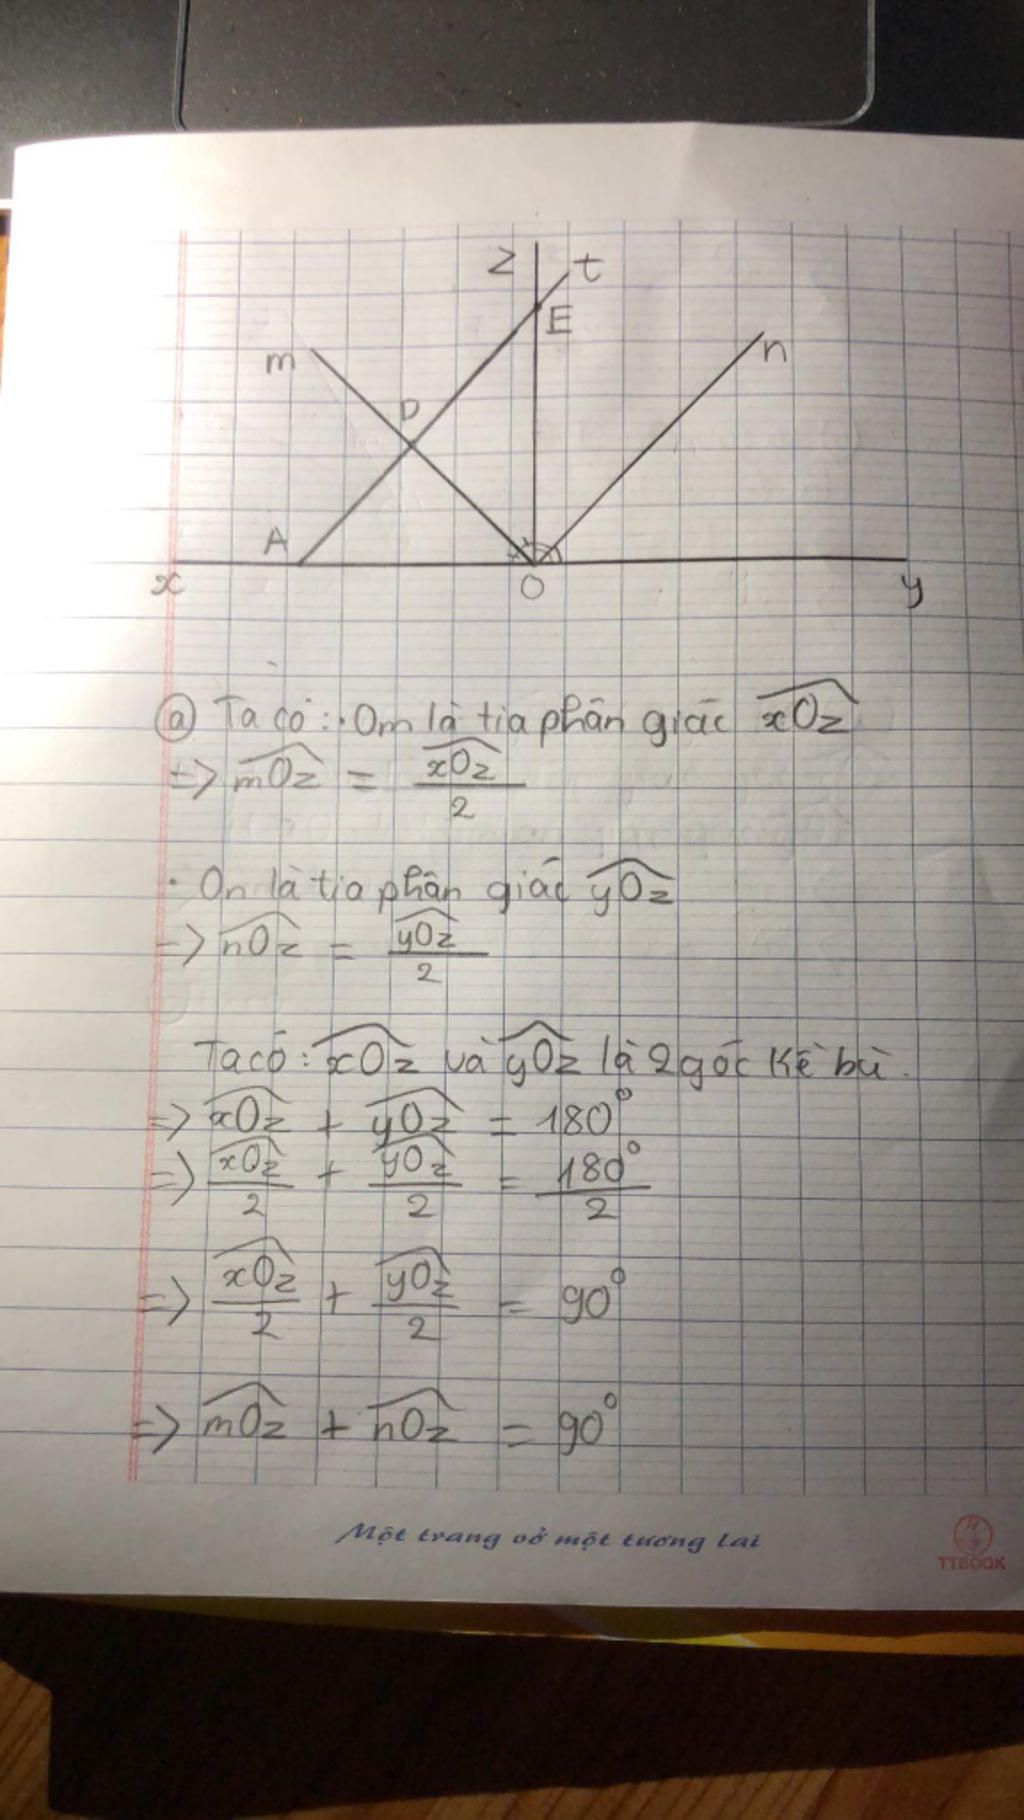 z t
E
m n
D
A
x O y
ⓐ Ta có: · Om là tia phân giác $\widehat{xOz}$
=> $\widehat{mOz}$ = $\frac{\widehat{xOz}}{2}$
· On là tia phân giác $\widehat{yOz}$
=> $\widehat{nOz}$ = $\frac{\widehat{yOz}}{2}$
Ta có: $\widehat{xOz}$ và $\widehat{yOz}$ là 2 góc kề bù.
=> $\widehat{xOz}$ + $\widehat{yOz}$ = 180°
=> $\frac{\widehat{xOz}}{2}$ + $\frac{\widehat{yOz}}{2}$ = $\frac{180°}{2}$
=> $\frac{\widehat{xOz}}{2}$ + $\frac{\widehat{yOz}}{2}$ = 90°
=> $\widehat{mOz}$ + $\widehat{nOz}$ = 90°
Một trang vở một tương lai
TTBOOK